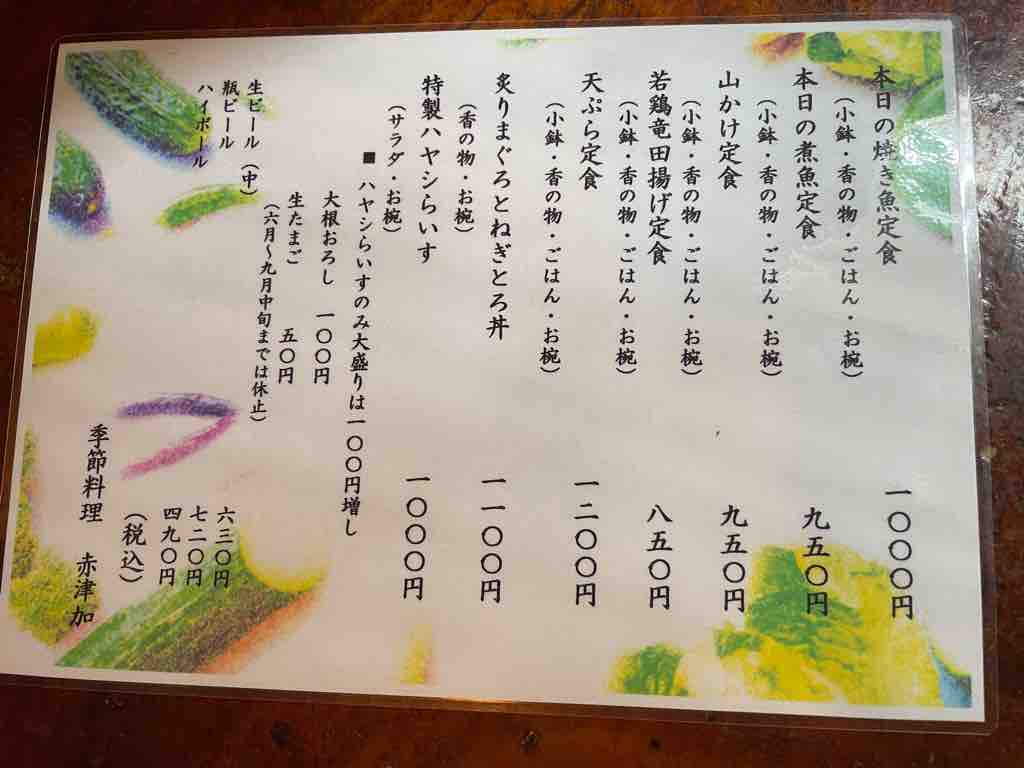 本日の焼き魚定食 一〇〇〇円
（小鉢・香の物・ごはん・お椀）
本日の煮魚定食 九五〇円
（小鉢・香の物・ごはん・お椀）
山かけ定食 九五〇円
（小鉢・香の物・ごはん・お椀）
若鶏竜田揚げ定食 八五〇円
（小鉢・香の物・ごはん・お椀）
天ぷら定食 一二〇〇円
（小鉢・香の物・ごはん・お椀）
炙りまぐろとねぎとろ丼 一一〇〇円
（香の物・お椀）
特製ハヤシらいす 一〇〇〇円
（サラダ・お椀）
■ ハヤシらいすのみ大盛りは一〇〇円増し
大根おろし 一〇〇円
生たまご 五〇円
（六月～九月中旬までは休止）
生ビール（中） 六三〇円
瓶ビール 七二〇円
ハイボール 四九〇円
（税込）
季節料理 赤津加